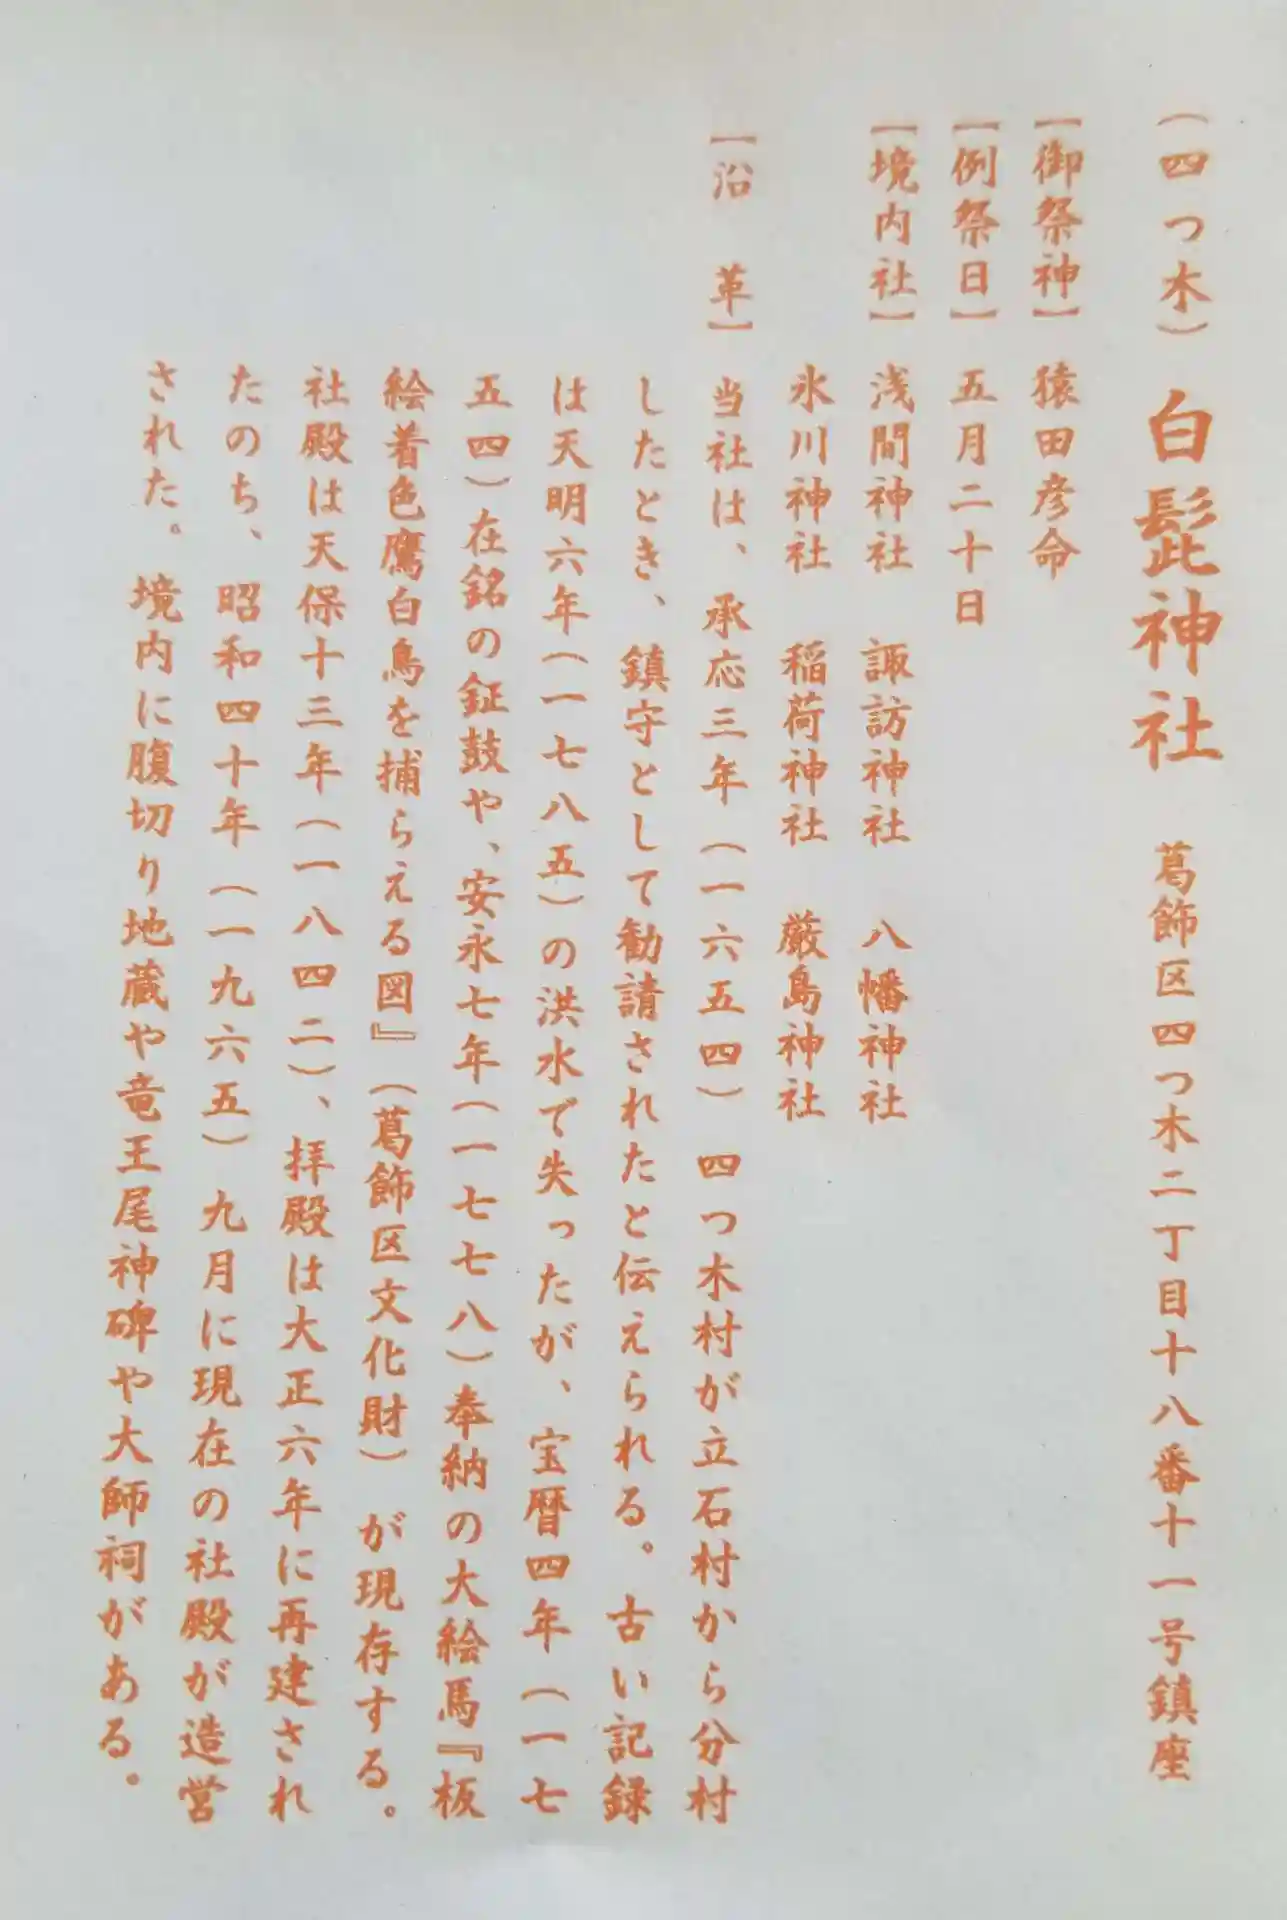 (四つ木) 白髭神社 葛飾区四つ木二丁目十八番十一号鎮座
【御祭神】 猿田彦命
【例祭日】 五月二十日
【境内社】 浅間神社 諏訪神社 八幡神社
氷川神社 稲荷神社 厳島神社
【沿 革】 当社は、承応三年(一六五四)四つ木村が立石村から分村
したとき、鎮守として勧請されたと伝えられる。古い記録
は天明六年(一七八五)の洪水で失ったが、宝暦四年(一七
五四)在銘の鉦鼓や、安永七年(一七七八)奉納の大絵馬『板
絵着色鷹白鳥を捕らえる図』(葛飾区文化財)が現存する。
社殿は天保十三年(一八四二)、拝殿は大正六年に再建され
たのち、昭和四十年(一九六五)九月に現在の社殿が造営
された。境内に腹切り地蔵や竜王尾神碑や大師祠がある。